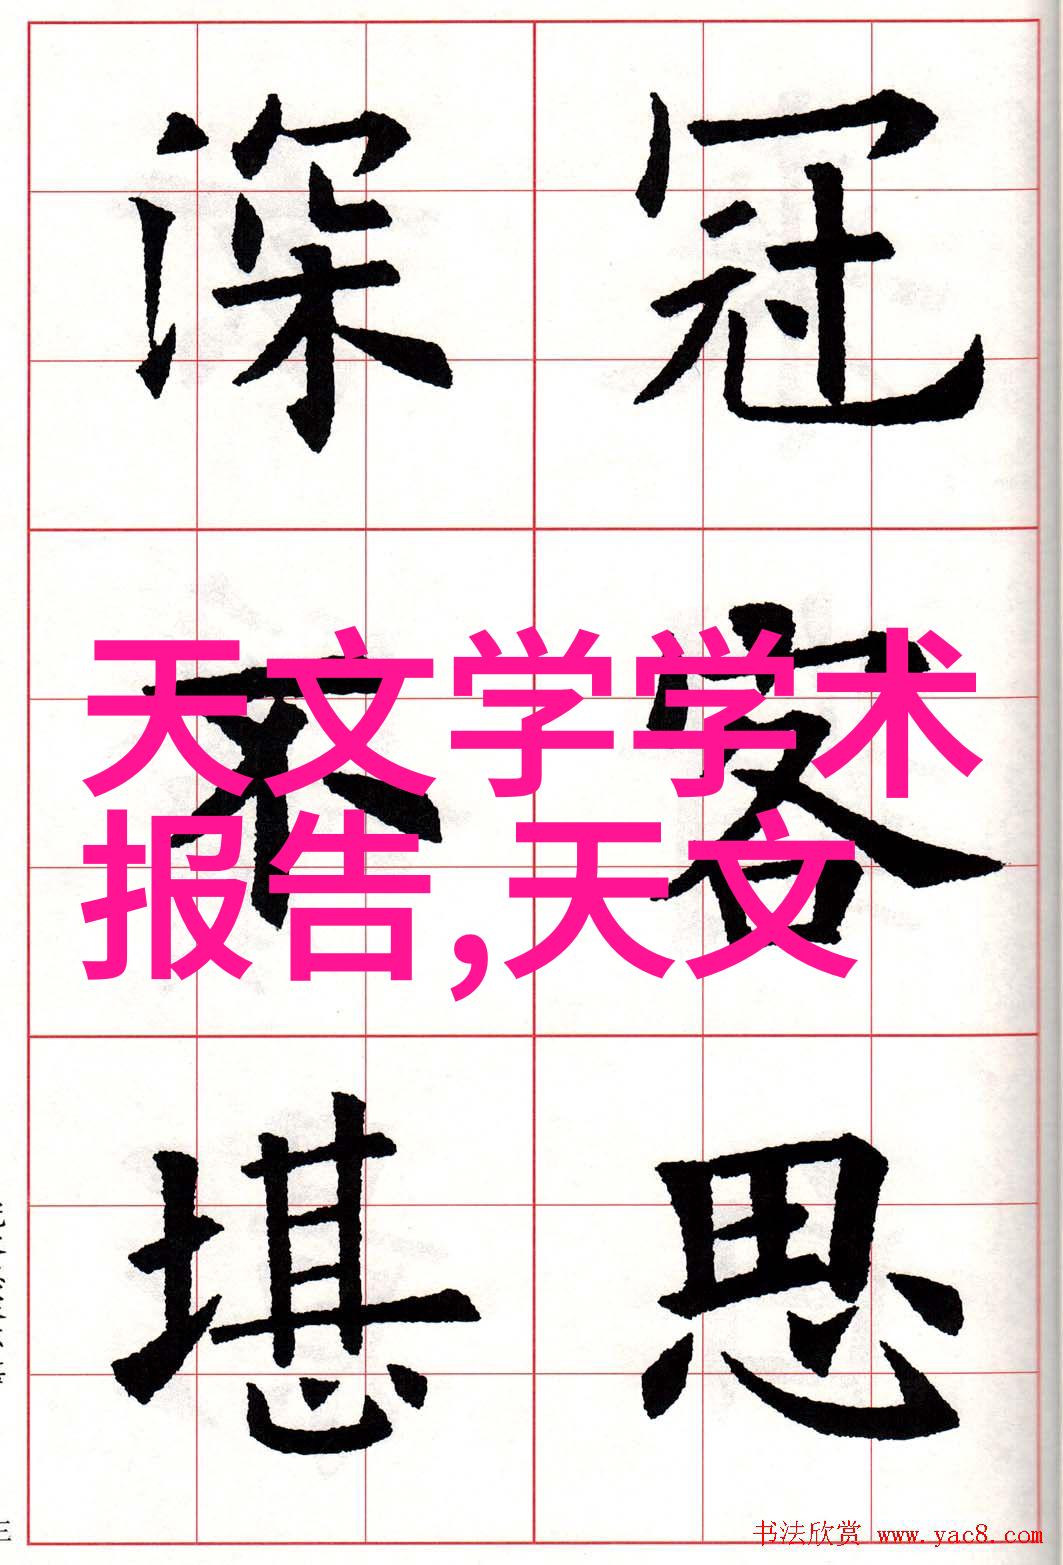 冠客思
深不堪
天文学学术
报告,天文
书法欣赏 www.yac8.com